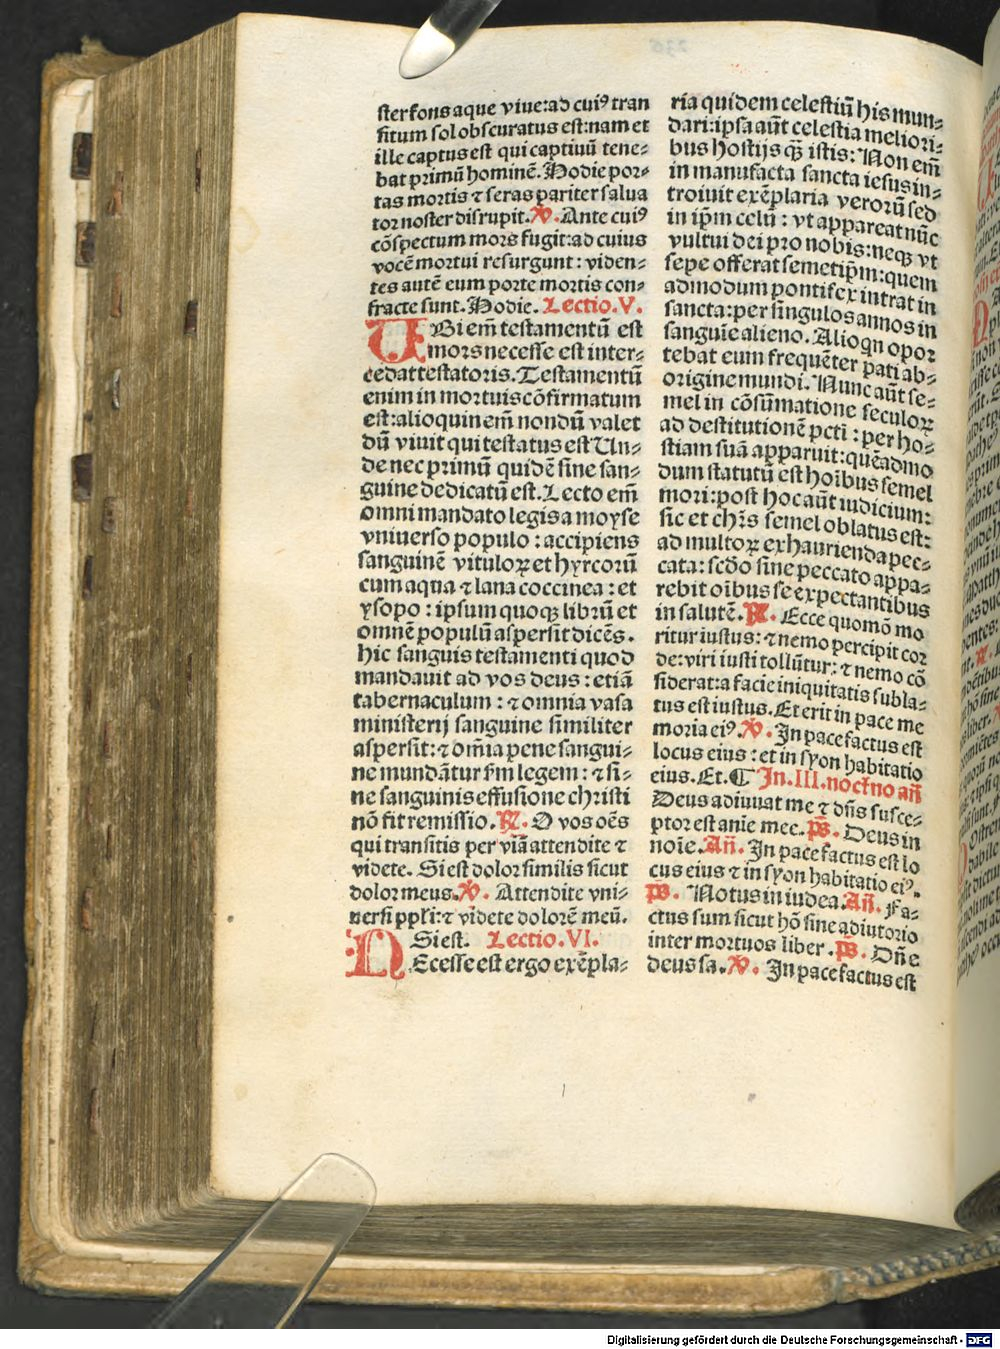 ster fons aque viue: ad cuiꝰ tran
situm sol obscuratus est: nam et
ille captus est qui captiuū tene-
bat primū hominē. Hodie por-
tas mortis ⁊ seras pariter salua
tor noster disrupit. ℣. Ante cuiꝰ
cōspectum mors fugit: ad cuius
vocē mortui resurgunt: viden-
tes autē eum porte mortis con-
fracte sunt. Hodie. Lectio. V.
UBi em̄ testamentū est
mors necesse est inter-
cedat testatoris. Testamentū
enim in mortuis cōfirmatum
est: alioquin em̄ nondū valet
dū viuit qui testatus est Un-
de nec primū quidē sine san-
guine dedicatū est. Lecto em̄
omni mandato legis a moyse
vniuerso populo: accipiens
sanguinē vituloꝝ et hyrcorū
cum aqua ⁊ lana coccinea: et
ysopo: ipsum quoqꝫ librū et
omnē populū aspersit dicēs.
hic sanguis testamenti quod
mandauit ad vos deus: etiā
tabernaculum: ⁊ omnia vasa
ministerij sanguine similiter
aspersit: ⁊ oīmia pene sangui-
ne mundātur ſm legem: ⁊ si-
ne sanguinis effusione christi
nō fit remissio. ℟. O vos oēs
qui transitis per viā attendite ⁊
videte. Si est dolor similis sicut
dolor meus. ℣. Attendite vni-
uersi ppl'i: ⁊ videte dolorē meū.
Si est. Lectio. VI.
NEcesse est ergo exēpla-
ria quidem celestiū his mun-
dari: ipsa aūt celestia meliori-
bus hostijs qꝫ istis: Non em̄
in manufacta sancta iesus in-
troiuit exēplaria verorū sed
in ip̄m celū: vt appareat nūc
vultui dei pro nobis: neqꝫ vt
sepe offerat semetip̄m: quem
admodum pontifex intrat in
sancta: per singulos annos in
sanguīe alieno. Alioqn opor
tebat eum frequēter pati ab-
origine mundi. Nunc aūt se-
mel in cōsūmatione seculoꝝ
ad destitutionē pctī: per ho-
stiam suā apparuit: quēadmo
dum statutū est hoībus semel
mori: post hoc aūt iudicium:
sic et chr̄s semel oblatus est:
ad multoꝝ exhaurienda pec-
cata: scdo sine peccato appa-
rebit oībus se expectantibus
in salutē. ℟. Ecce quomō mo
ritur iustus: ⁊ nemo percipit cor
de: viri iusti tollūtur: ⁊ nemo cō
siderat: a facie iniquitatis subla-
tus est iustus. Et erit in pace me
moria eiꝰ. ℣. In pace factus est
locus eius: et in syon habitatio
eius. Et. ¶ In. III. noct̄no añ
Deus adiuuat me ⁊ dn̄s susce-
ptor est anīe mee. p̄s. Deus in
noīe. Añ. In pace factus est lo
cus eius ⁊ in syon habitatio eiꝰ.
p̄s. Notus in iudea. Añ. Fa-
ctus sum sicut hō sine adiutorio
inter mortuos liber. p̄s. Dn̄e
deus sa. ℣. In pace factus est
Digitalisierung gefördert durch die Deutsche Forschungsgemeinschaft - DFG